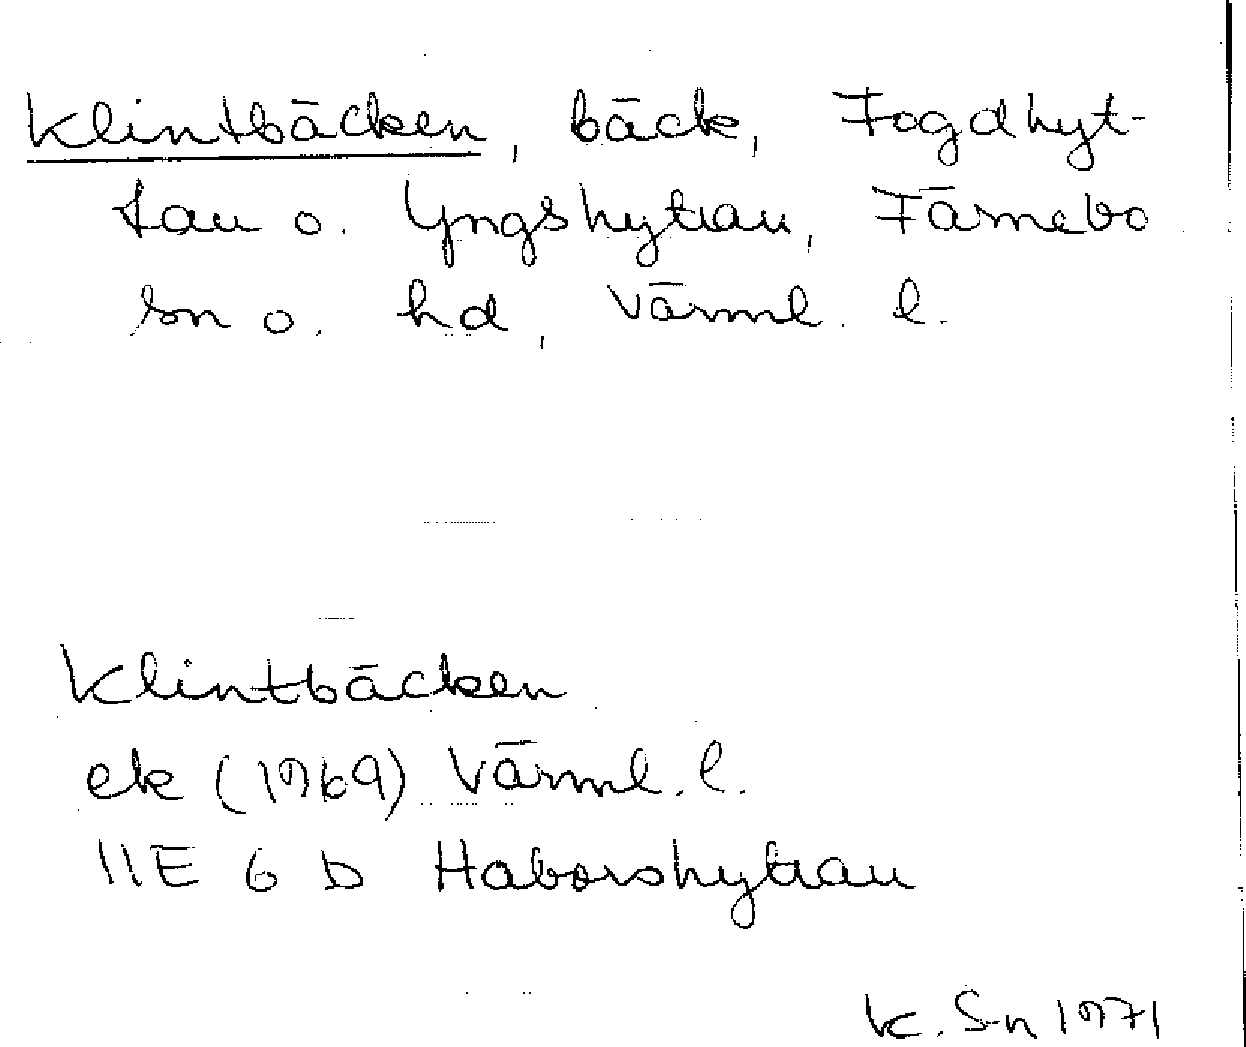 Klintbäcken, bäck, Fogdhyt-
tan o. Yngshyttan, Färnebo
sn o. hd, Värml. l.
Klintbäcken
ek (1969) Värml. l.
11E 6 b Haborshyttan
K. S-n 1971